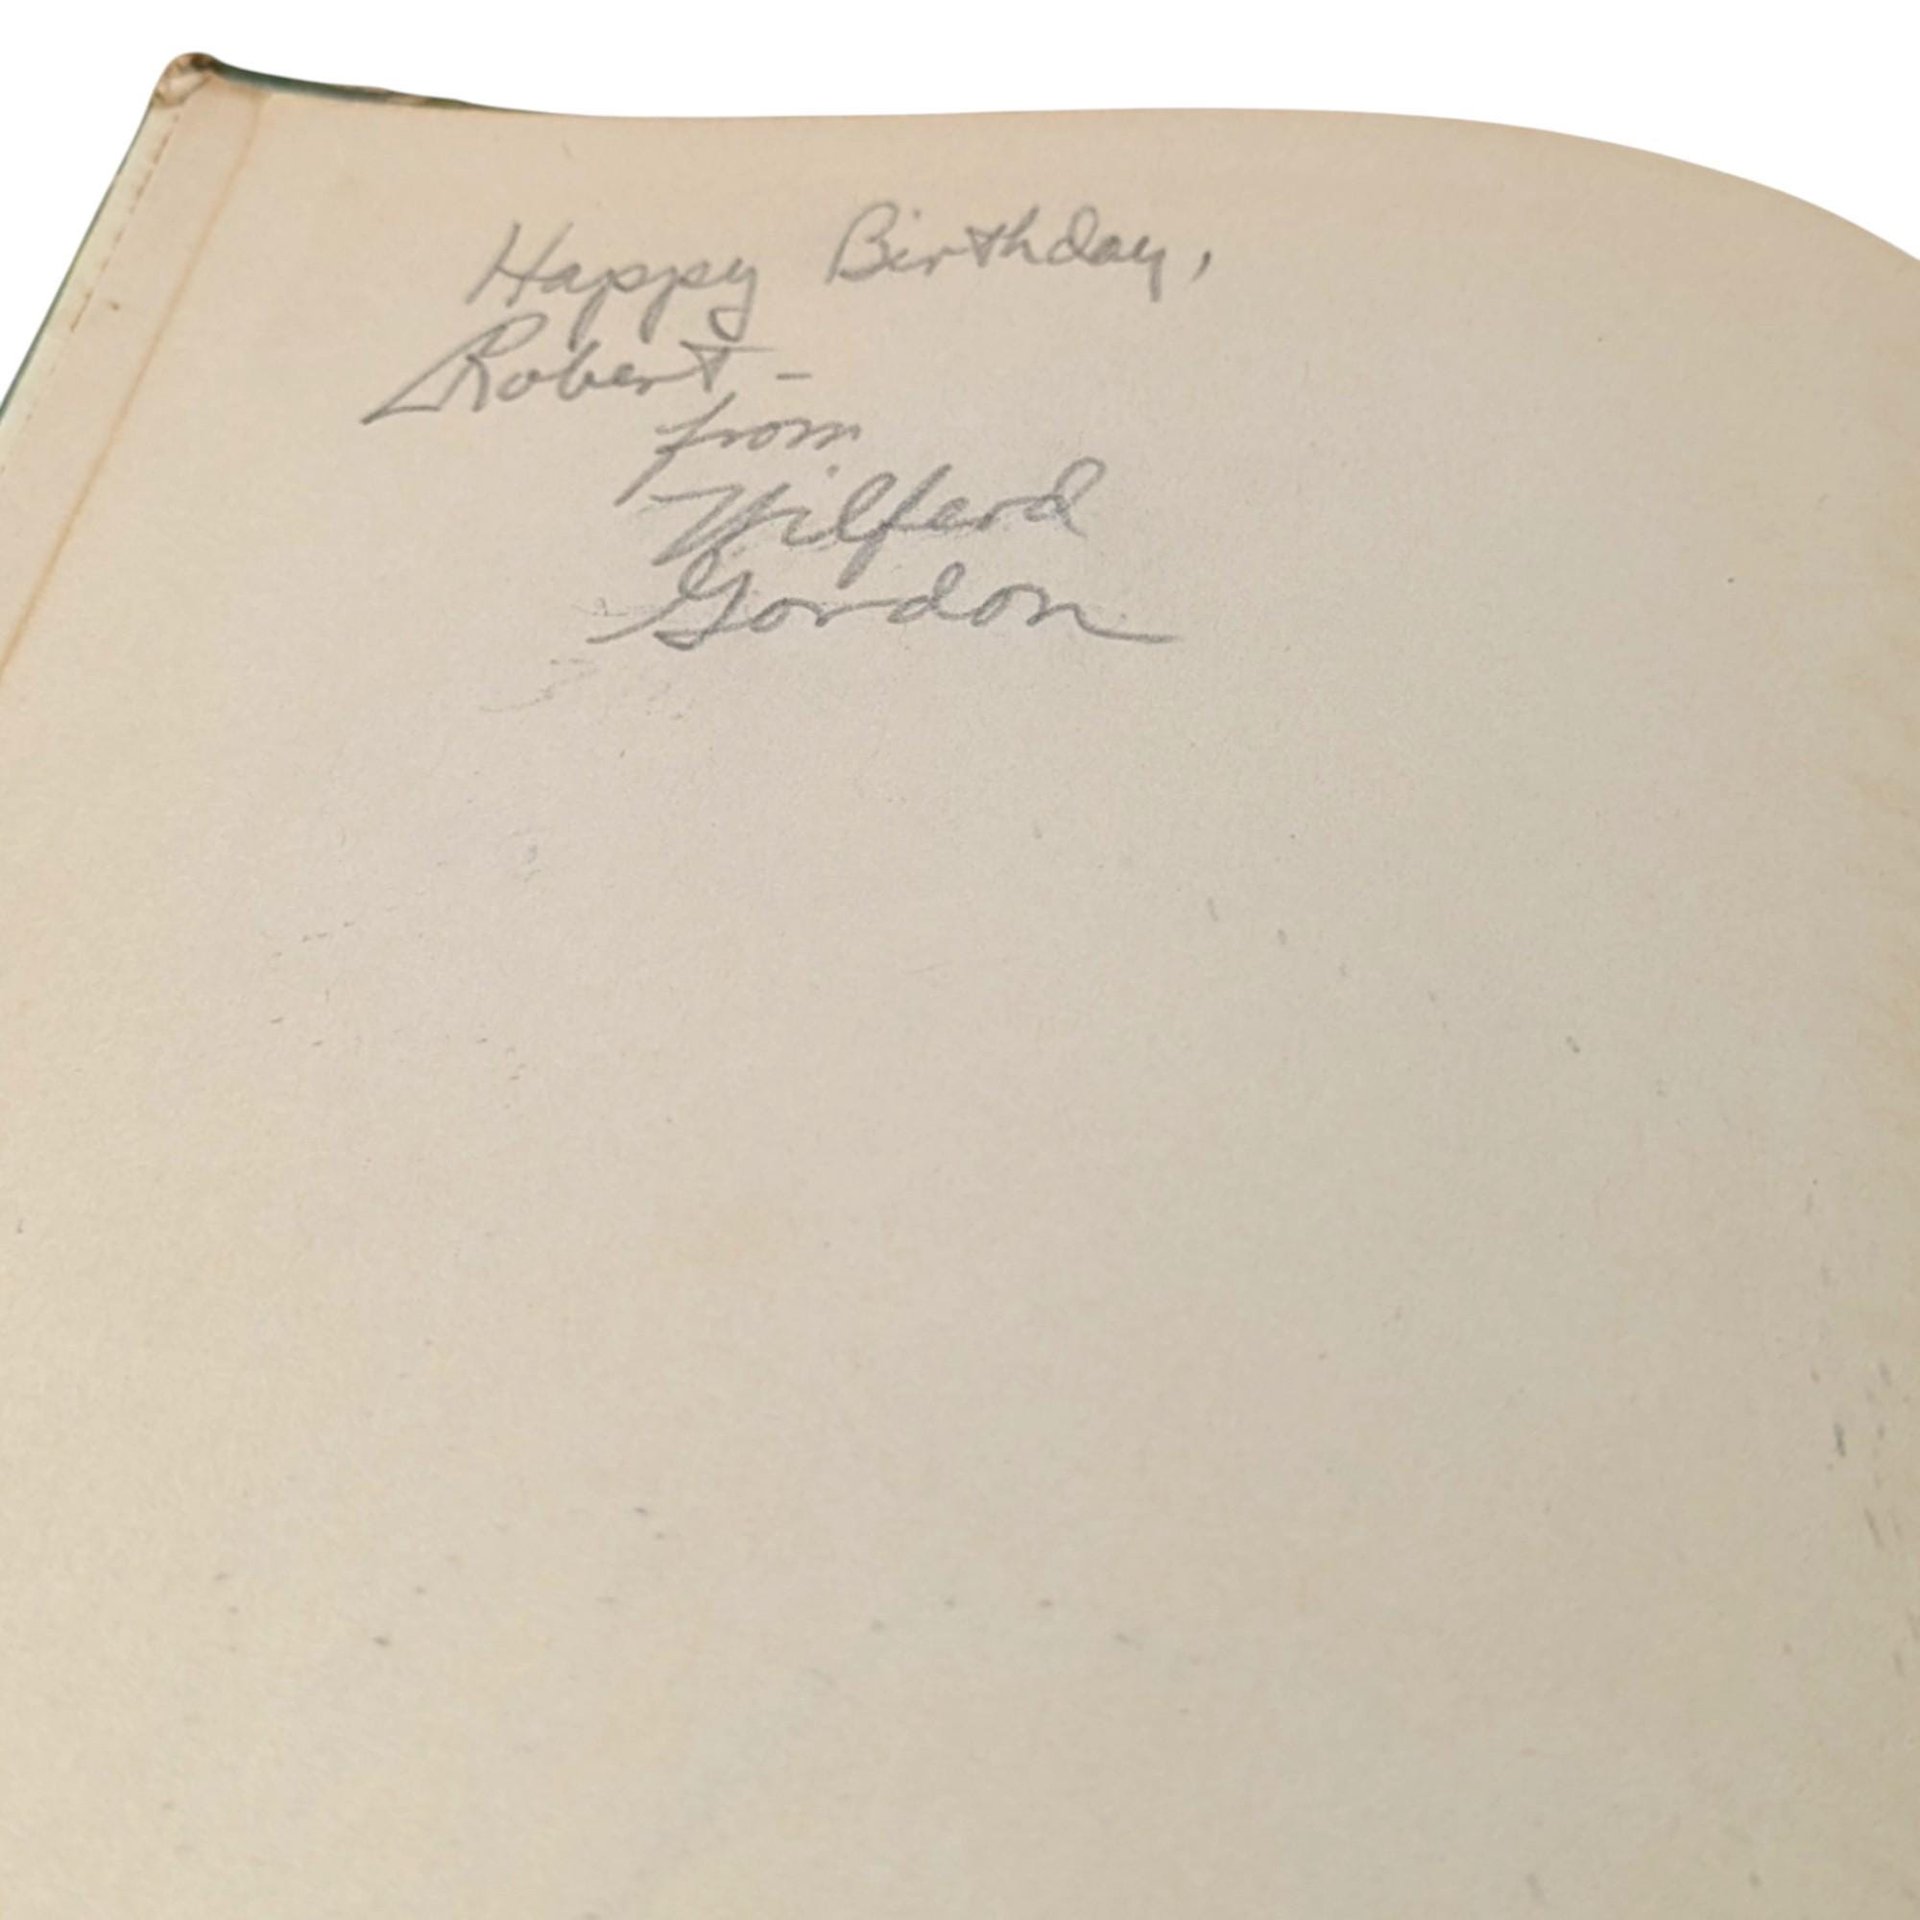 Happy Birthday,
Robert -
from
Wilferd
Gordon